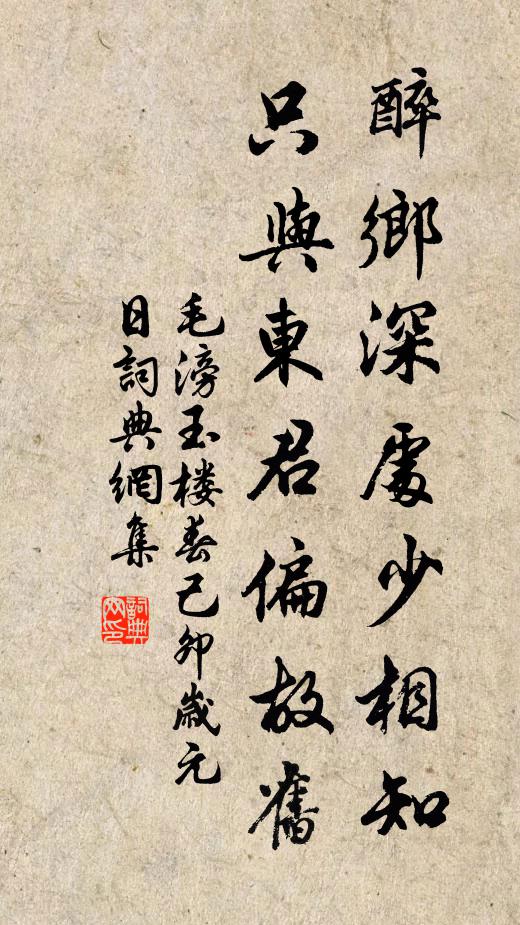 醉鄉深處少相知
只與東君偏故舊
毛滂玉楼春己卯歲元
日詞典網集
詞典
网印